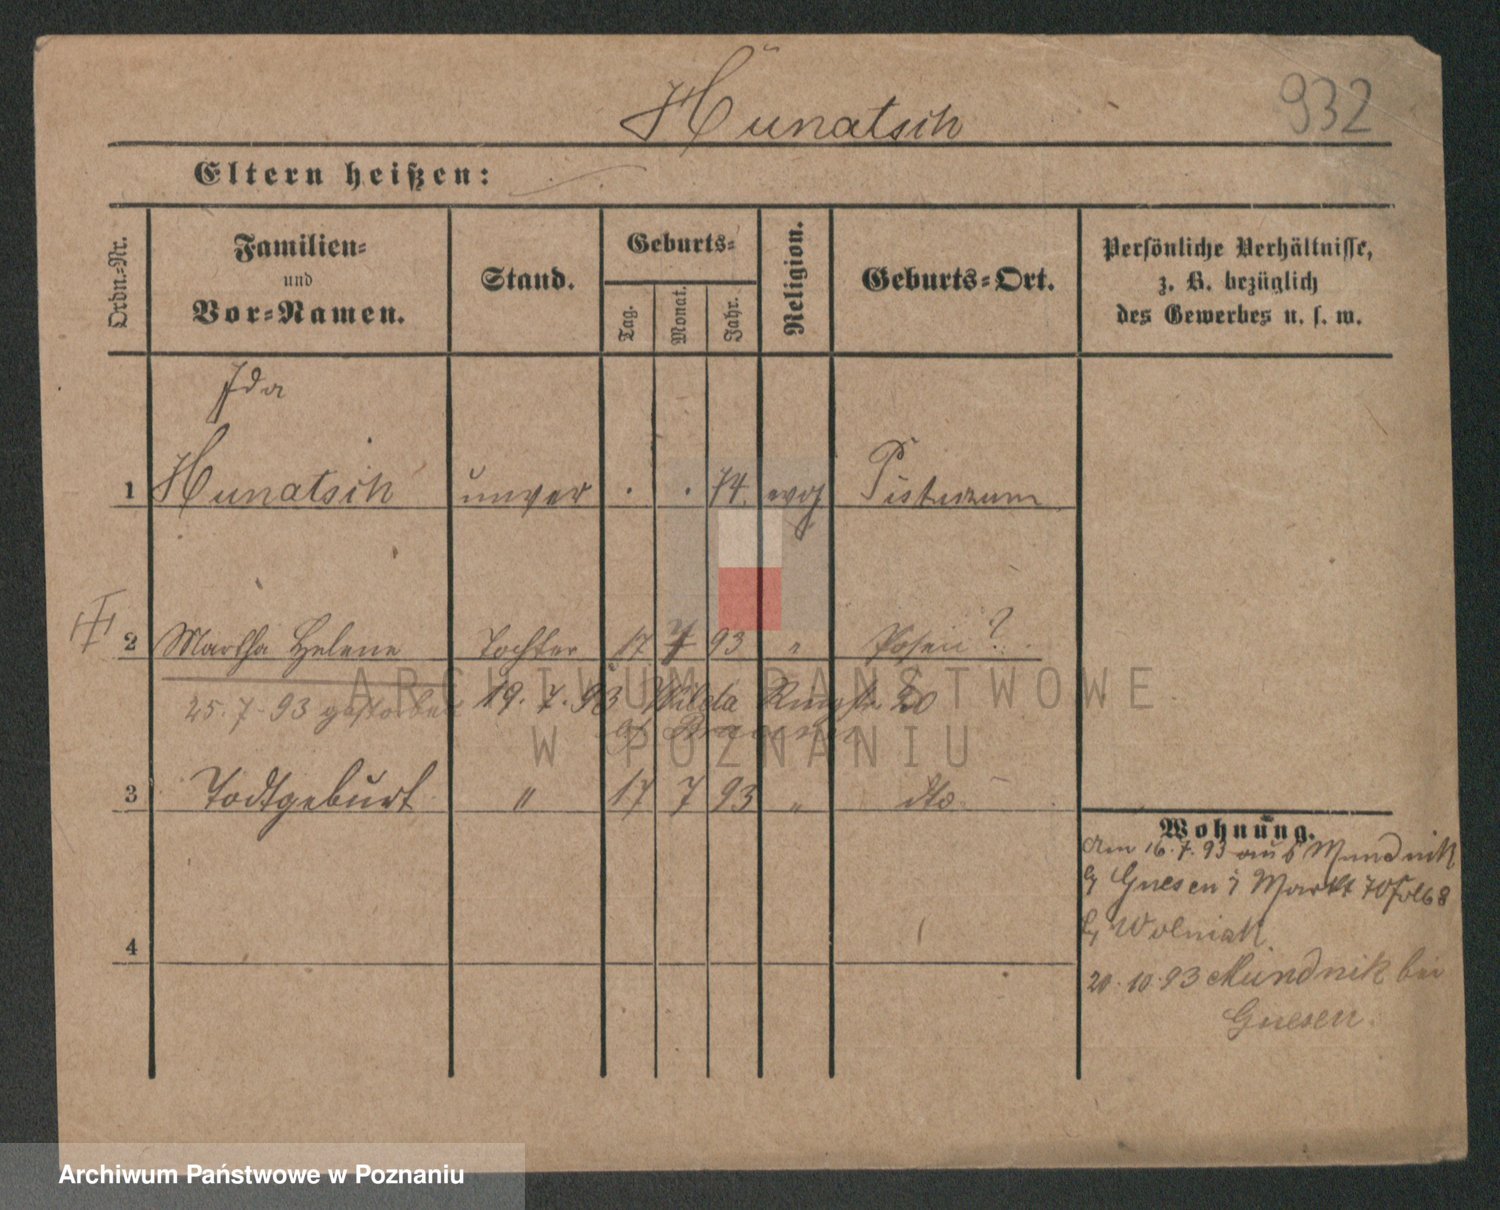 932
Hunatsch
Eltern heißen:
Ordn.-Nr.
Familien-
und
Vor-Namen.
Stand.
Geburts-
Tag.
Monat.
Jahr.
Religion.
Geburts-Ort.
Persönliche Verhältnisse,
z. B. bezüglich
des Gewerbes u. s. w.
Ida
1 Hunatsch unver . . 74. evg
2 Martha Helene Tochter 17 7 93 " Posen ?
25. 7. 93 gestorben 19. 7. 93 Wilda 20
3 Todtgeburt " 17 7 93 " dto
4
Wohnung.
Am 16. 7. 93 aus Mundnik
Gnesen Markt
Wolniak
20. 10. 93 Mundnik bei
Gnesen.
ARCHIWUM PAŃSTWOWE
W POZNANIU
Archiwum Państwowe w Poznaniu